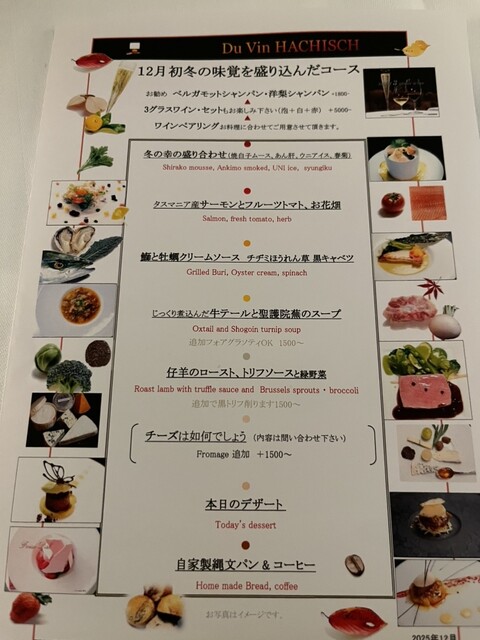 Du Vin HACHISCH
12月初冬の味覚を盛り込んだコース
お勧め ベルガモットシャンパン・洋梨シャンパン -1800-
3グラスワイン・セットもお楽しみ下さい(泡+白+赤) +5000-
ワインペアリングお料理に合わせてご用意させて頂きます。
冬の幸の盛り合わせ(焼白子ムース、あん肝、ウニアイス、春菊)
Shirako mousse, Ankimo smoked, UNI ice, syungiku
タスマニア産サーモンとフルーツトマト、お花畑
Salmon, fresh tomato, herb
鰤と牡蠣クリームソース チヂミほうれん草 黒キャベツ
Grilled Buri, Oyster cream, spinach
じっくり煮込んだ牛テールと聖護院蕪のスープ
Oxtail and Shogoin turnip soup
追加フォアグラソティOK 1500〜
仔羊のロースト、トリフソースと緑野菜
Roast lamb with truffle sauce and Brussels sprouts・broccoli
追加で黒トリフ削ります1500〜
チーズは如何でしょう (内容は問い合わせ下さい)
Fromage 追加 +1500〜
本日のデザート
Today's dessert
自家製縄文パン & コーヒー
Home made Bread, coffee
お写真はイメージです。
2025年12月